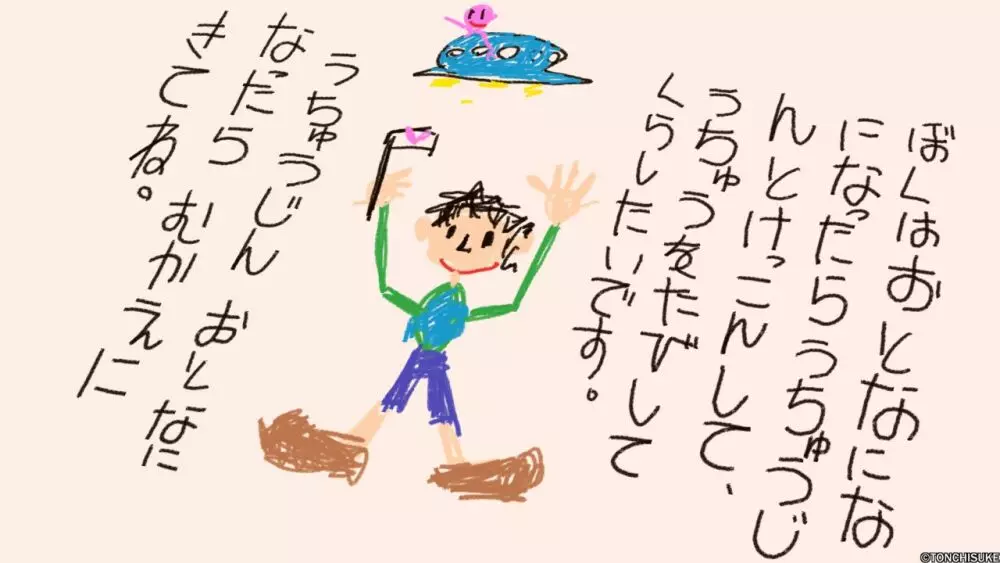 ぼくはおとなにな
になったらうちゅうじ
んとけっこんして、
うちゅうをたびして
くらしたいです。
うちゅうじん おとなに
なったら むかえに
きてね。
©TONCHISUKE